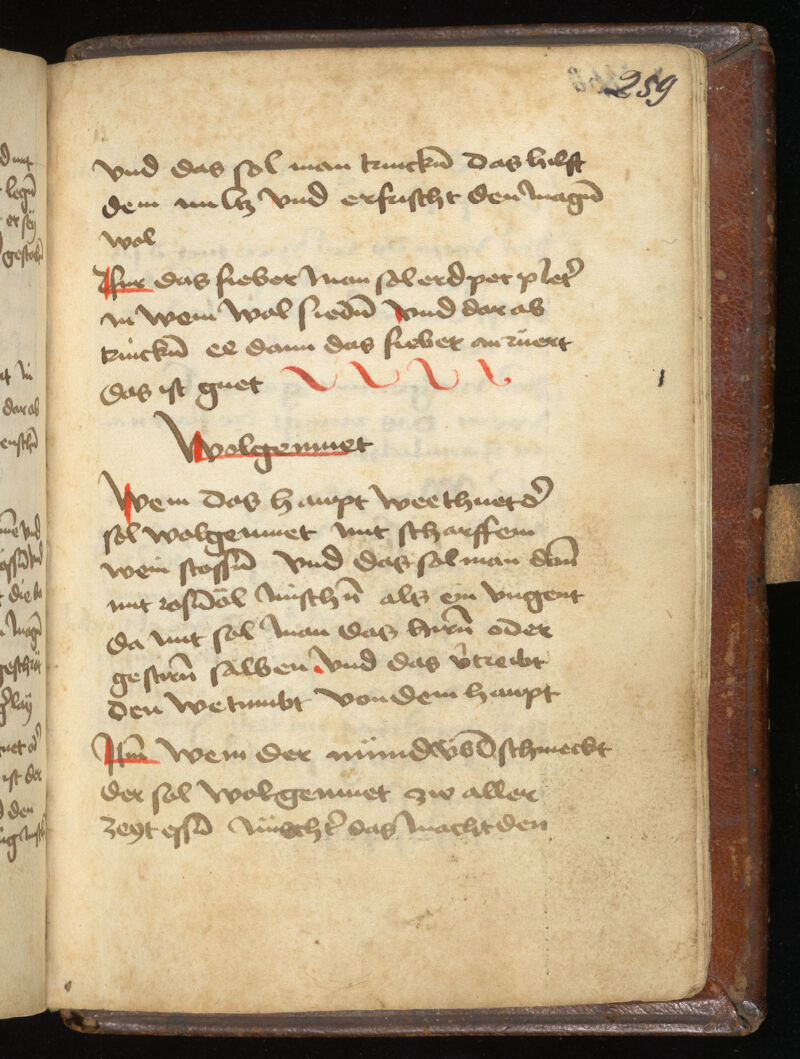 259
vnd das sol man trinckñ das hilft
dem miltz vnd erfrischt den magñ
wol
Fur das fieber man sol erdper pletˀ
in wein wol siedñ vnd dar ab
trinckñ ee dann das fieber an ruert
das ist guet
Wolgemuet
Wem das haupt wee thuet dˀ
sol wolgemuet mit scharffem
wein stossñ vnd das sol man dañ
mit rosñöl mischñ als ein vngent
da mit sol man das hirñ oder
gestirñ salben vnd das v̄treibt
den wetumbt von dem haupt
Itm̃ wem der mund vbel schmeckt
der sol wolgemuet zw aller
zeyt essñ nüechtˀ das macht den